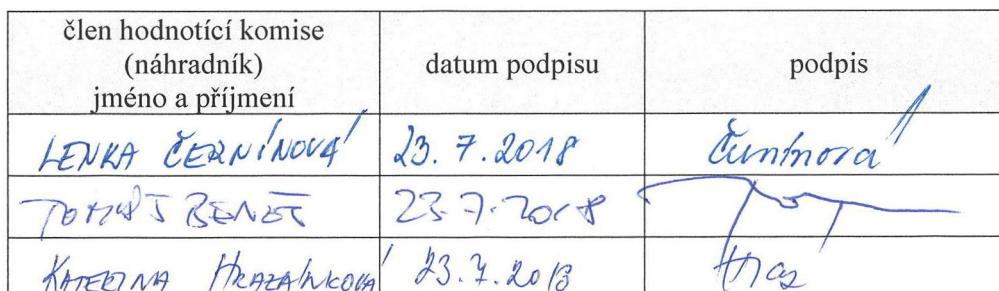 člen hodnotící komise
(náhradník)
jméno a příjmení
datum podpisu
podpis
LENKA ČERNÍNOVÁ 23. 7. 2018 Černínová
TOMÁŠ BENEŠ 23.7.2018
KATEŘINA 23.7.2018